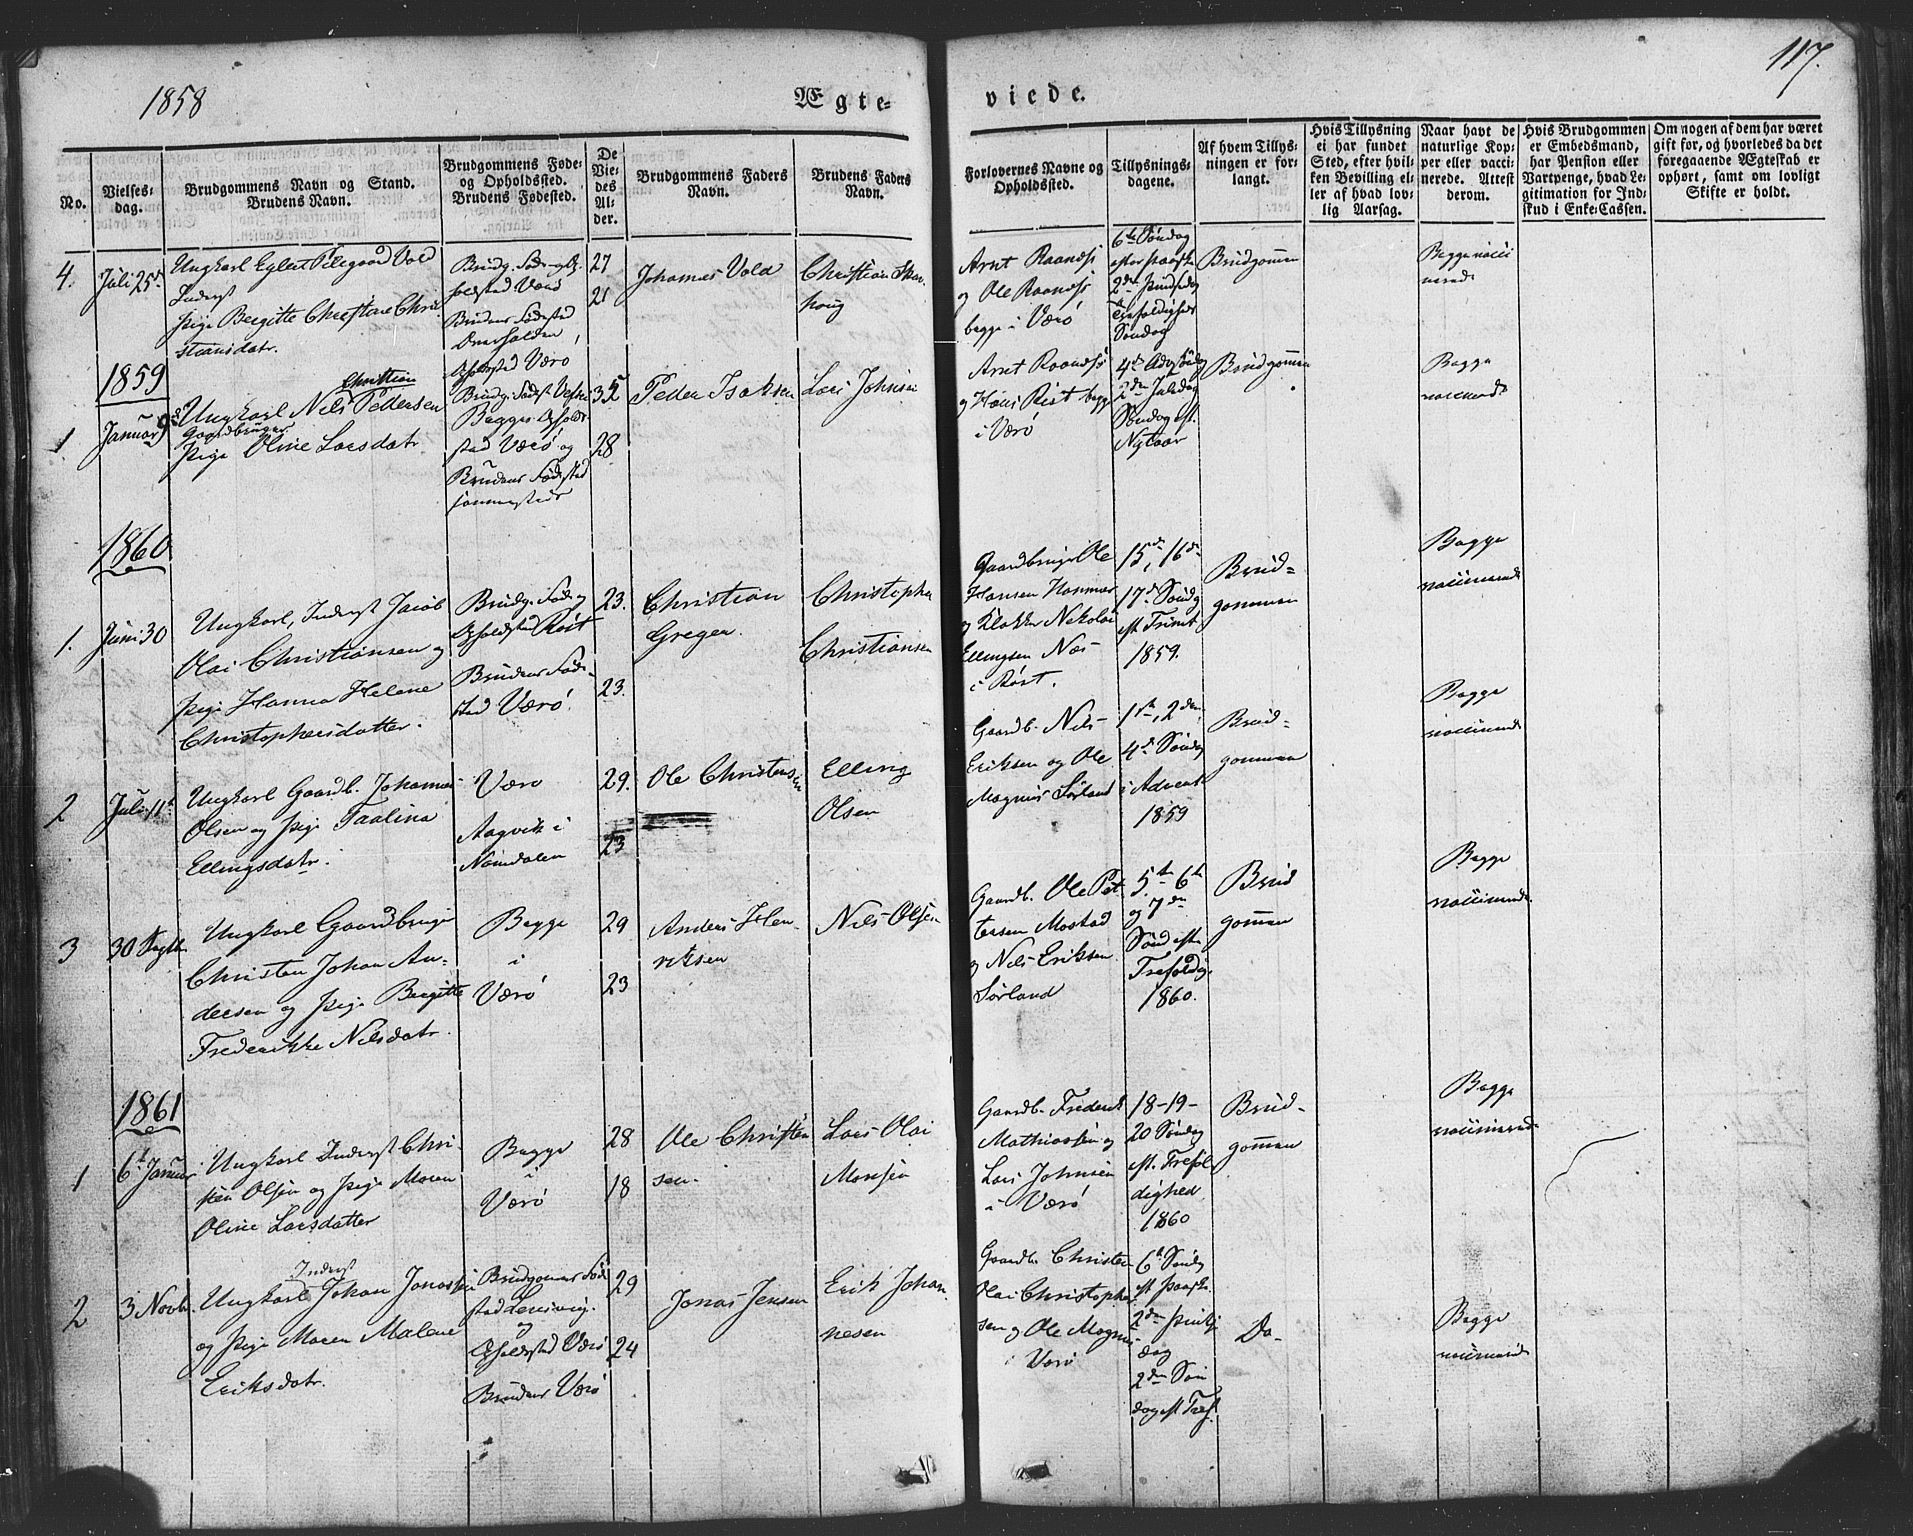 1858
Ægte-
viede.
117.
No.
Vielses-
dag.
Brudgommens Navn og Stand.
Brudens Navn.
Brudgommens Føde-
og Opholdssted.
Brudens Fødested.
De
Vie-
des
Al-
der.
Brudgommens Faders
Navn.
Brudens Faders
Navn.
Forlovernes Navne og
Opholdssted.
Tillysnings-
dagene.
Af hvem Tillys-
ningen er for-
langt.
Hvis Tillysning
ei har fundet
Sted, efter hvil-
ken Bevilling el-
ler af hvad lov-
lig Aarsag.
Naar havt de
naturlige Kop-
per eller vacci-
nerede. Attest
derom.
Hvis Brudgommen
er Embedsmand,
har Pension eller
Vartpenge, hvad Le-
gitimation for Ind-
skud i Enke-Cassen.
Om nogen af dem har været
gift for, og hvorledes da det
foregaaende Ægteskab er
ophørt, samt om lovligt
Skifte er holdt.
4.
Juli 25de
Ungkarl Eglert Pilegaard Vold
Inderst
Pige Bergitte Christiane Chri
stiansdatr.
Brudg. Føde- og Op-
holdsted Værø
Brudens Fødested
Overhalden,
Opholdsted Værø
27
21
Johannes Vold
Christian Skar-
houg
Arnt Raandss
og Ole Raandss
begge i Værø
6te Søndag
efter Paaske
2den Pindsedag
Trefoldigheds
Søndag
Brudgommen
Begge vacci
nerede
1859
1.
Januar 9de
Christian
Ungkarl Nils Pedersen
Gaardbruger
Pige Oline Larsdatr.
Begges Ophold-
sted Værø og
Brudens Fødested
sammesteds
35
28
Peder Isaksen
Lars Johnsen
Arnt Raandss
og Hans Rist begge
i Værø
4de Advs Søndag
2den Juledag
Søndag eft.
Nytaar
Brudgommen
Begge
vaccinerede
1860
1.
Juni 30
Ungkarl, Inderst Jacob
Olai Christiansen og
Pige Hanna Helene
Christophersdatter.
Brudg. Føde- og
Opholdsted Røst
Brudens Føde-
sted Værø.
23.
23.
Christian
Gregen.
Christopher
Christiansen
Gaardbruger Ole
Hansen Hammer
og Klokker Nikolai
Ellingsen Næs-
i Røst.
15de, 16de
17de Søndag
eft. Trinit
1859.
Brud-
gommen
Begge
vaccinerede
2
Juli 11te
Ungkarl Gaardb. Johannes
Olsen og Pige Taalina
Ellingsdatr.
Værø
Aagvik i
Namdalen
29.
23
Ole Christensen
Elling
Olsen
Gaardb. Nils
Eriksen og Ole
Magnus Sørland
1ste, 2den
4de Søndag
i Advent
1859
Brud-
gommen
Begge
vaccinerede
3
30 Septbr
Ungkarl Gaardbruger
Christen Johan An-
dersen og Pige Bergitte
Frederikke Nilsdatr.
Begge
i
Værø
29
23
Anders Hen-
riksen
Nils Olsen
Gaardb. Ole Pet
ersen Mostad
og Nils Eriksen
Sørland
5te 6te
og 7de
Sønd. efter
Trefoldig.
1860.
Brud
gommen
Begge
vaccinerede
1861
1
6te Januar
Ungkarl Inderst Chri-
sten Olsen og Pige Maren
Oline Larsdatter
Begge
i
Værø
28
18
Ole Christen
sen.
Lars Olai
Monsen
Gaardb. Frederik
Mathiassen og
Lars Johnsen
i Værø
18-19-
20 Søndag
eft. Trefol
dighed
1860
Brud-
gommen
Begge
vaccinerede
2
3 Novbr.
Inderst
Ungkarl Johan Jonassen
og Pige Maren Malene
Eriksdatr.
Brudgommens Føde
og
Opholdsted Værø
Brudens Værø
29
24
Jonas Jensen
Erik Johan
nesen
Gaardb. Christen
Olai Christopher
sen og Ole Magnus
i Værø
6te Søndag
eft. Paaske
2den Pintse
dag
2den Søn
dag eft Tref.
Do-
Begge
vaccinerede